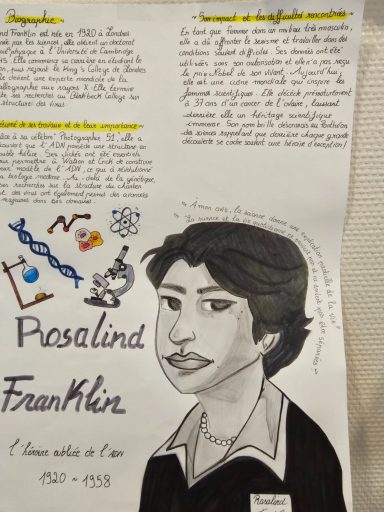 Biographie
nd Franklin est née en 1920 à Londres
par les sciences, elle obtient un doctorat
physique à l'Université de Cambridge
Elle commence sa carrière en étudiant le
puis rejoint le King's College de Londres
elle devient une experte mondiale de la
allographie aux rayons X. Elle termine
ses recherches au Birkbeck College sur
structures des virus.
de ses travaux et de leur importance ~
ce à sa célèbre "Photographie 51", elle a
couvert que l'ADN possède une structure en
uble hélice. Ses clichés ont été essentiels
permettre à Watson et Crick de construire
modèle de l'ADN, ce qui a révolutionné
biologie moderne. Au-delà de la génétique,
ses recherches sur la structure du charbon
des virus ont également permis des avancées
majeures dans ces domaines.
~ Son impact et les difficultés rencontrées ~
En tant que femme dans un milieu très masculin,
elle a dû affronter le sexisme et travailler dans des
conditions souvent difficiles. Ses données ont été
utilisées sans son autorisation et elle n'a pas reçu
le prix Nobel de son vivant. Aujourd'hui,
elle est une icône mondiale qui inspire les
femmes scientifiques. Elle décède prématurément
à 37 ans d'un cancer de l'ovaire, laissant
derrière elle un héritage scientifique
immense. Son nom brille désormais au Panthéon
des sciences rappelant que derrière chaque grande
découverte se cache souvent une héroïne d'exception!
"À mon avis, la science donne une explication partielle de la vie"
« La science et la vie quotidienne ne doivent pas être séparées »
Rosalind
Franklin
l'héroïne oubliée de l'ADN
1920 ~ 1958
Rosalind